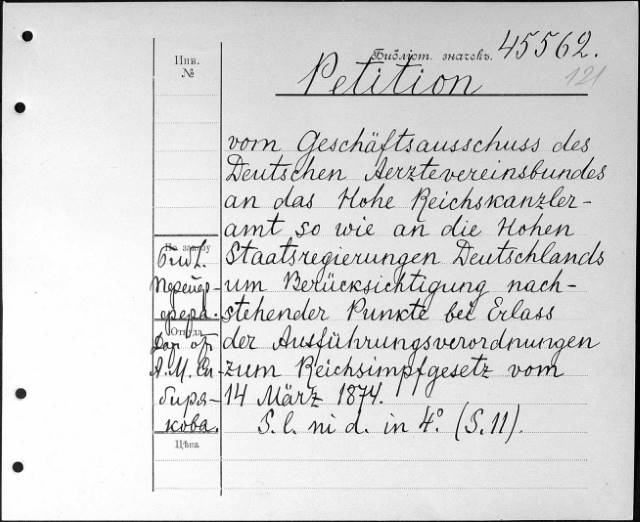 Библіот. значекъ. 45562.
121
Petition
Инв.
№
vom Geschäftsausschuss des
Deutschen Aerztevereinsbundes
an das Hohe Reichskanzler-
amt so wie an die Hohen
Staatsregierungen Deutschlands
um Berücksichtigung nach-
stehender Punkte bei Erlass
der Ausführungsverordnungen
zum Reichsimpfgesetz vom
14 März 1874.
S. l. ni d. in 4° (S. 11).
По заказу
Откуда
Даръ отъ
А. М. Си-
биря-
кова.
Цѣна